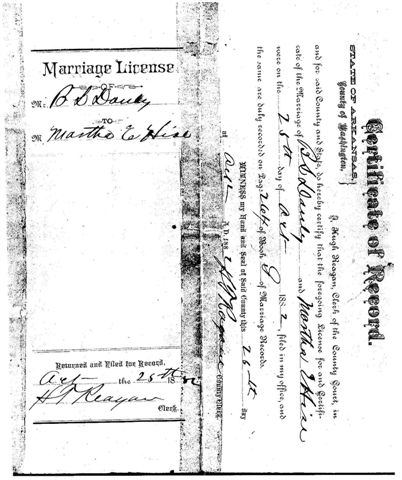 Marriage License
OF
Mr. B S Dauly
TO
M Martha E Hise
Returned and Filed for Record,
Oct the 25th 1882
H F Reagan
Clerk.
Certificate of Record.
STATE OF ARKANSAS,
County of Washington.
I, Hugh Reagan, Clerk of the County Court, in
and for said County and State, do hereby certify that the foregoing License for and Certifi-
cate of the Marriage of B S Dauly and Martha E Hise
were on the 25th day of Oct 1882, filed in my office, and
the same are duly recorded on Page of Book G of Marriage Records.
WITNESS my Hand and Seal of said County this 25th day
of Oct A. D. 188
H F Reagan County Clerk.